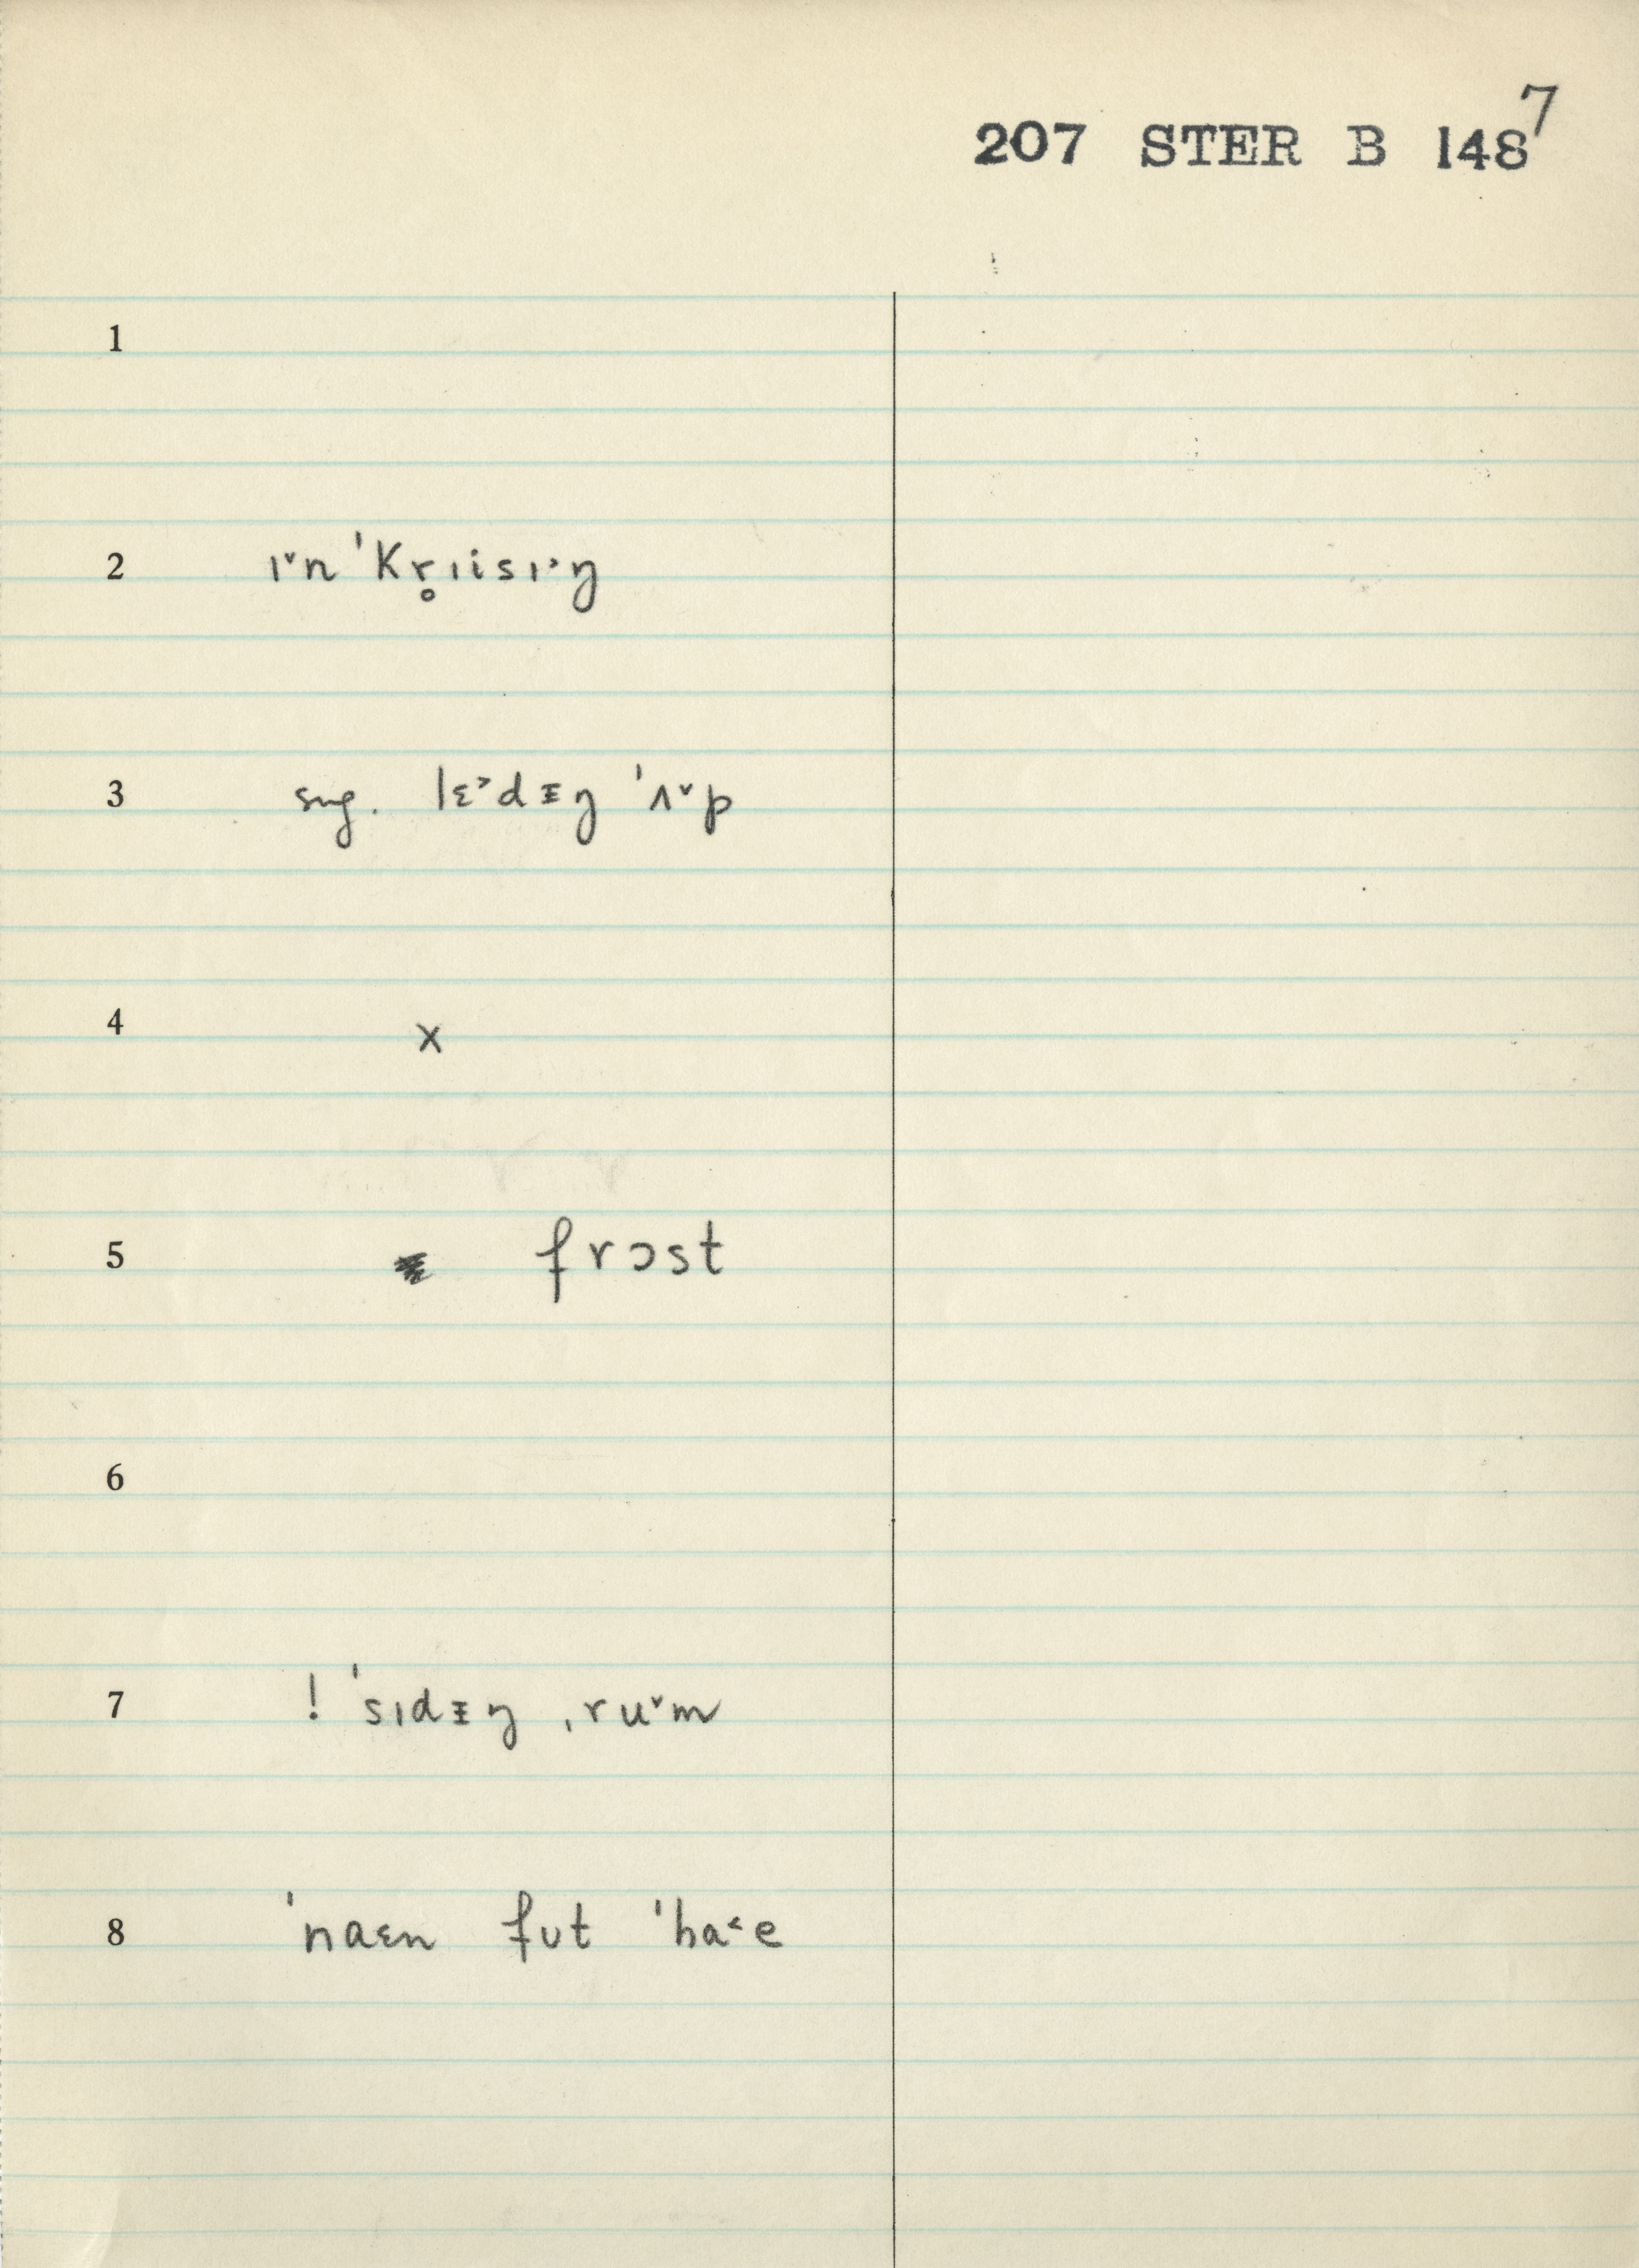 7
207 STER B 148
1
2 ɪ˅n ˈkr̥ɪisɪ˃ŋ
3 sug. lɛ˃dᵻŋ ˈʌ˅p
4 x
5 frɔst
6
7 ! ˈsɪdᵻŋ ˌru˅m
8 ˈnaɛn fʊt ˈha˂e